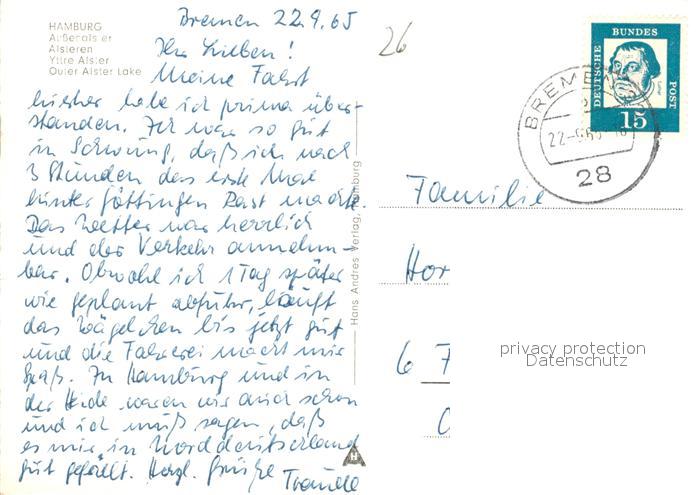 HAMBURG
Außenalster
Alsteren
Yttre Alster
Outer Alster Lake
Bremen 22.9.65
Ihr Lieben!
Meine Fahrt
hierher habe ich prima über-
standen. Ich war so gut
in Schwung, daß ich nach
3 Stunden das erste Mal
hinter Göttingen Rast machte.
Das Wetter war herrlich
und der Verkehr annehm-
bar. Obwohl ich 1 Tag später
wie geplant abfuhr, läuft
das Wägelchen bis jetzt gut
und die Fahrerei macht mir
Spaß. In Hamburg und in
der Heide waren wir auch schon
und ich muß sagen, daß
es mir in Norddeutschland
gut gefällt. Herzl. Grüße
Traudl
Hans Andres Verlag, Hamburg
H
26
DEUTSCHE BUNDES POST
15
BREMEN
28
Familie
Hor
6
privacy protection
Datenschutz